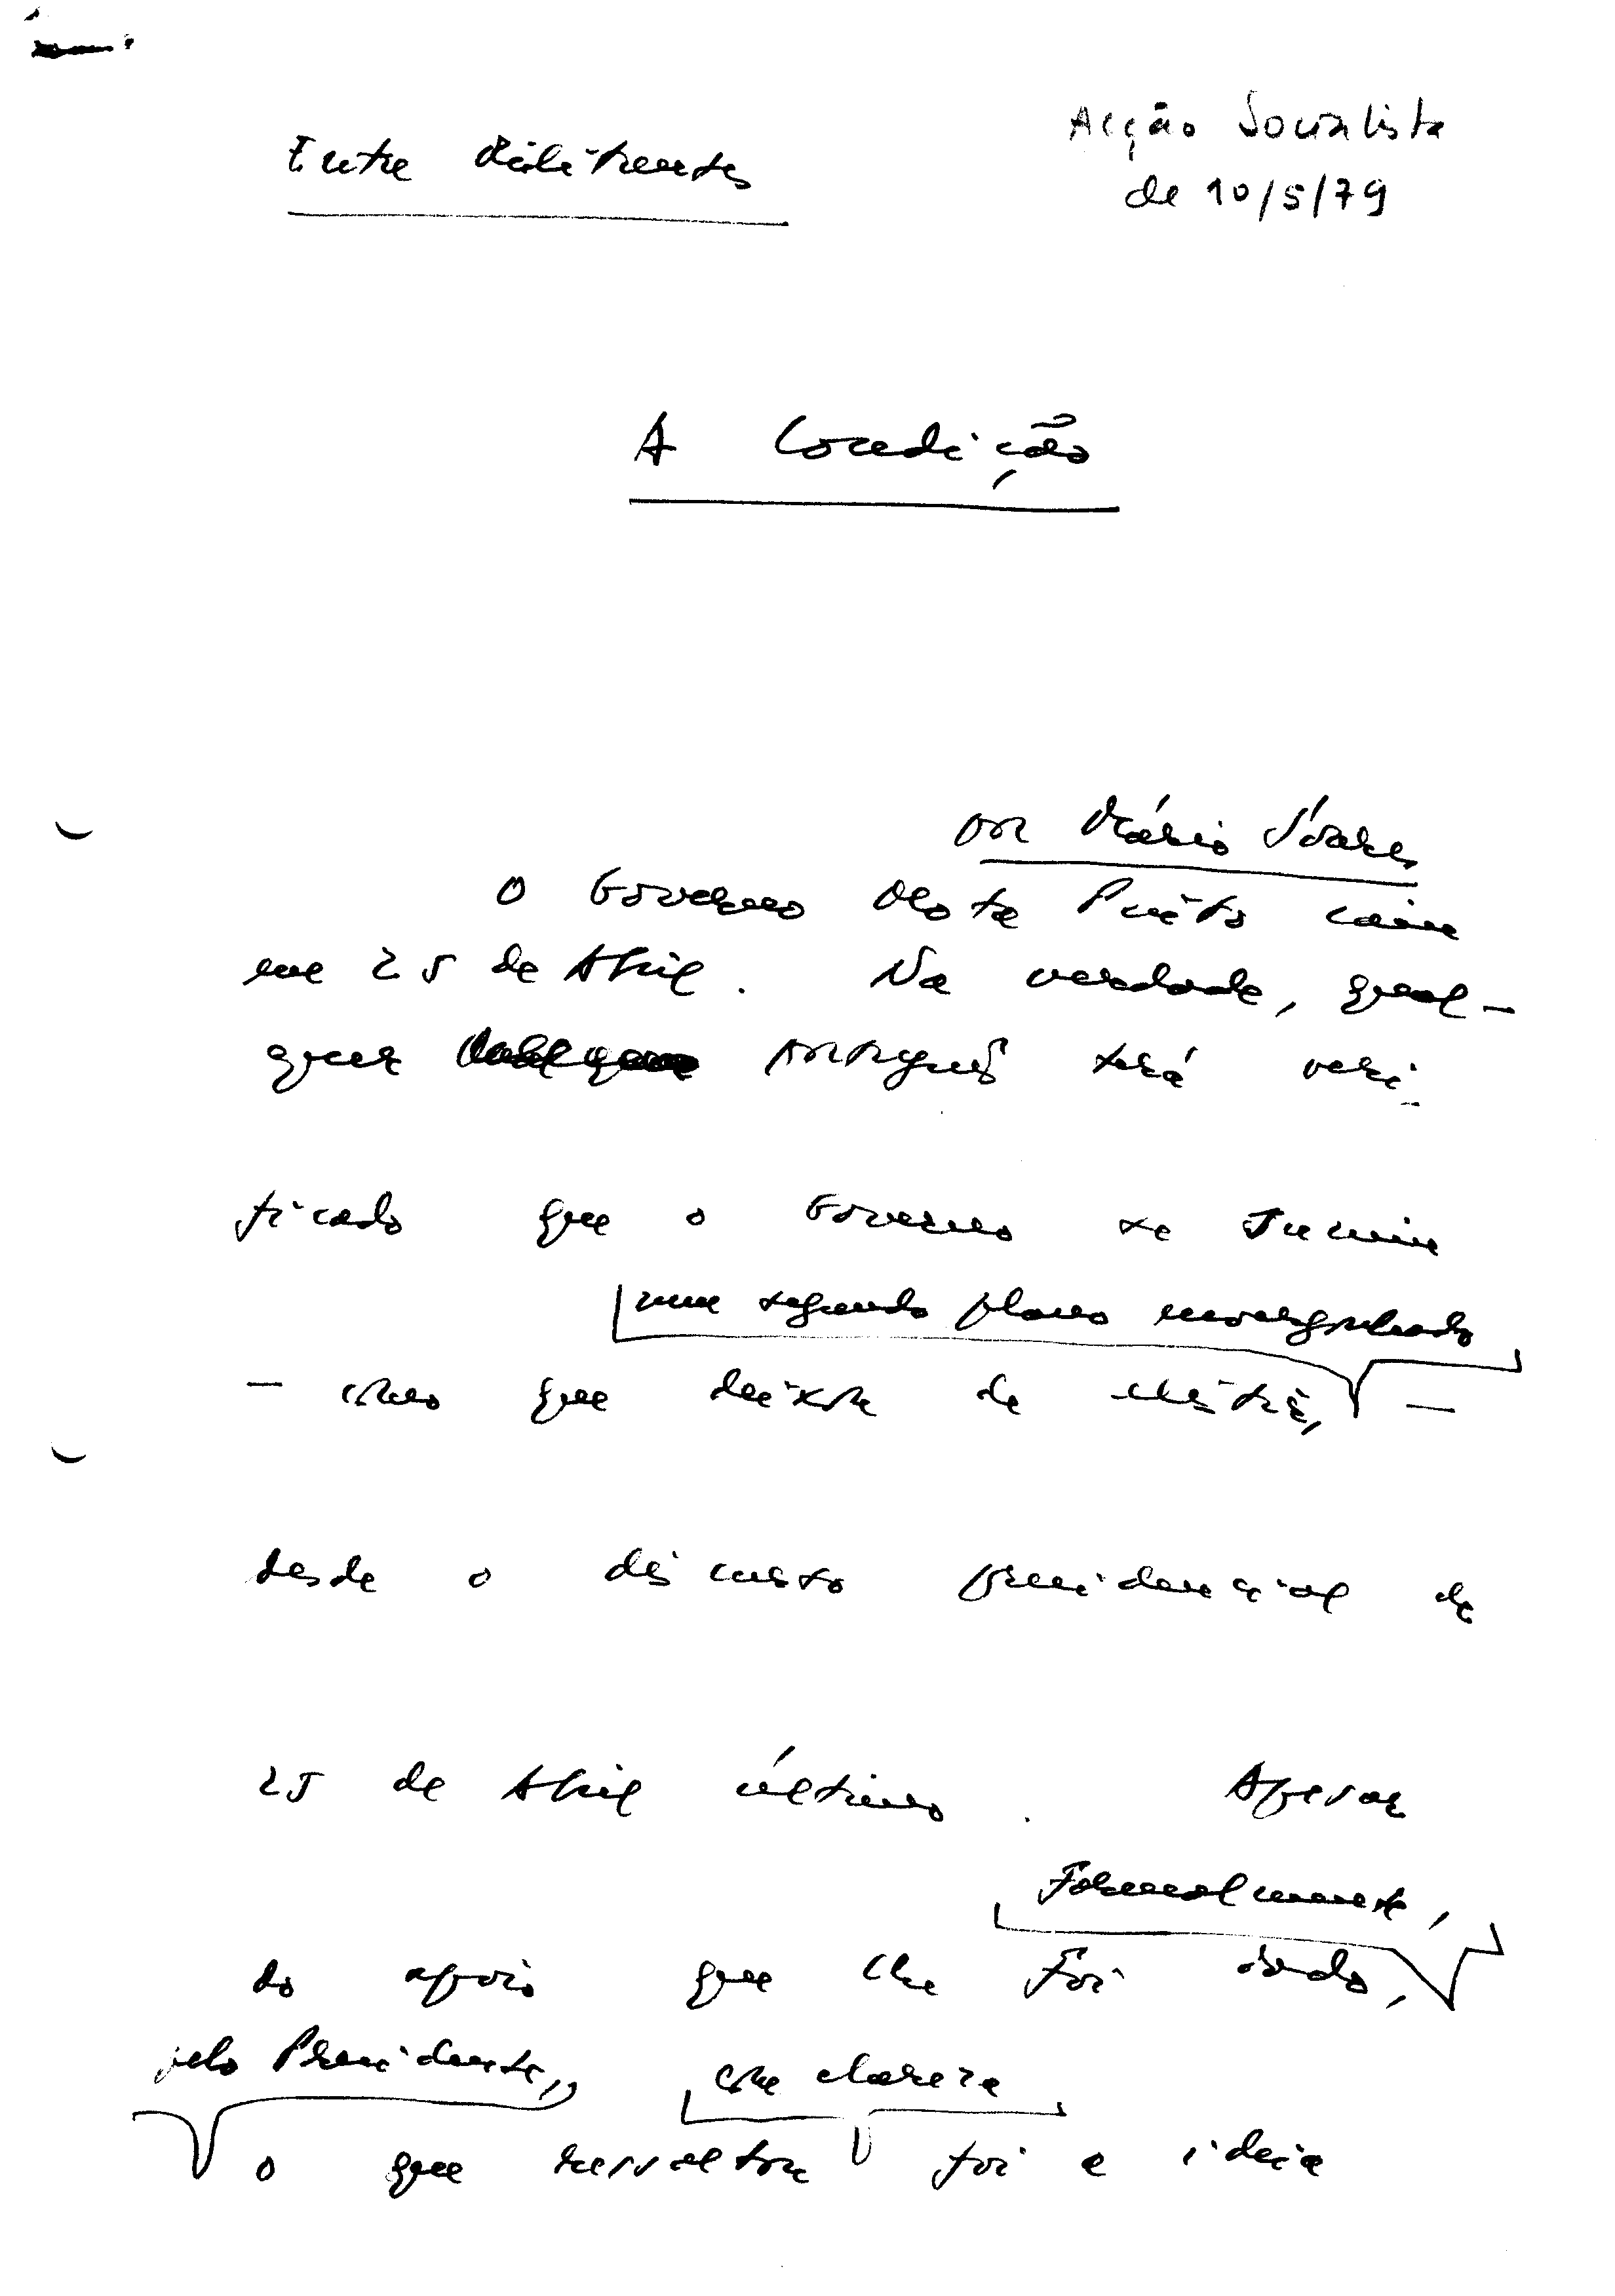 Entre Militantes
Acção Socialista
de 10/5/79
A Condição
por Mário Soares
O Governo Mota Pinto caiu
em 25 de Abril. Na verdade, qual-
quer português terá veri-
ficado que o Governo se sumiu
num segundo plano envergonhado
– como que deixou de existir, –
desde o discurso presidencial de
25 de Abril último. Apesar
formalmente,
do apoio que lhe foi dado,
pelo Presidente, com clareza
o que ressaltou foi a ideia